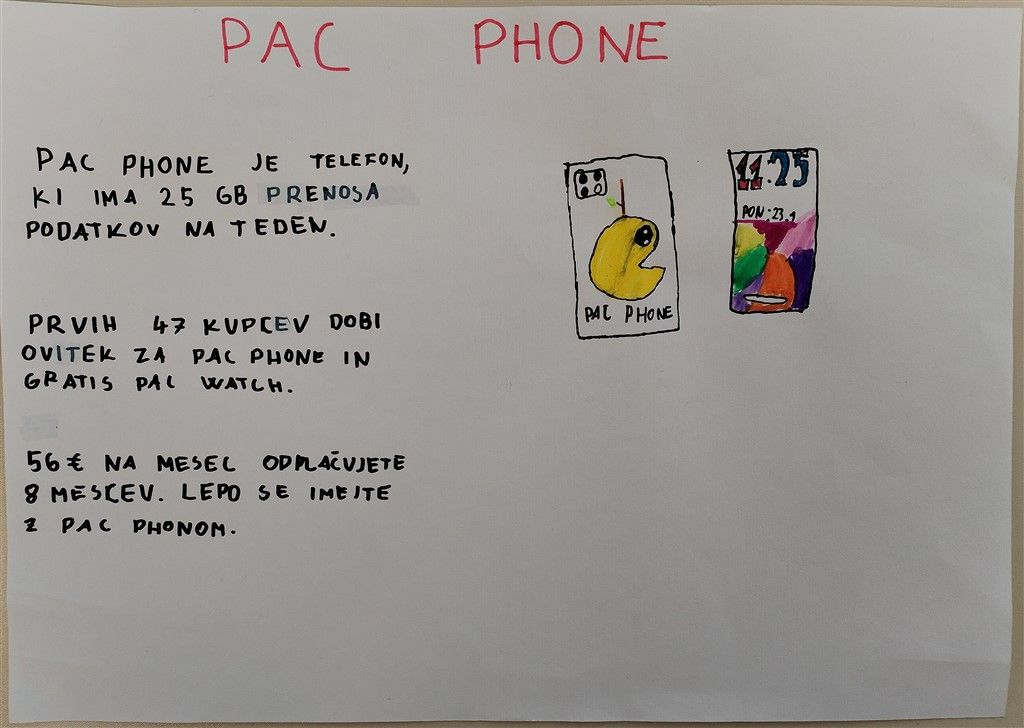 PAC PHONE
PAC PHONE JE TELEFON,
KI IMA 25 GB PRENOSA
PODATKOV NA TEDEN.
PRVIH 47 KUPCEV DOBI
OVITEK ZA PAC PHONE IN
GRATIS PAC WATCH.
56 € NA MESEC ODPLAČUJETE
8 MESCEV. LEPO SE IMEJTE
Z PAC PHONOM.
PAC PHONE
11.25
PON. 23.1